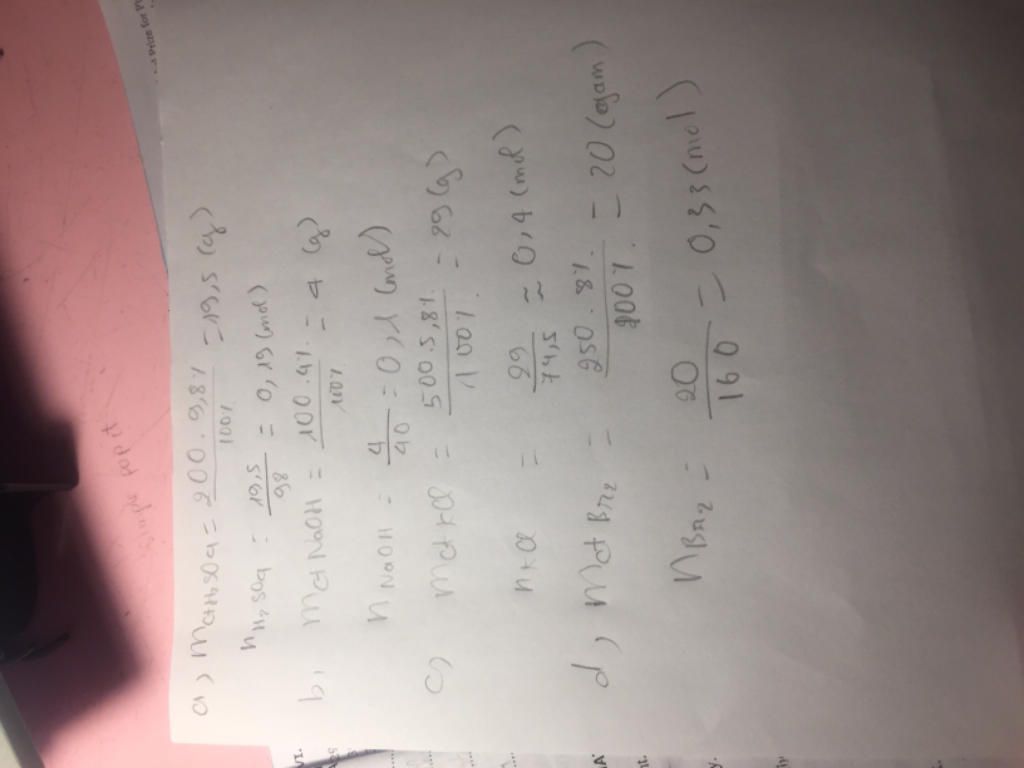 a) mctH₂SO4 = 200 . 9,8% / 100% = 19,5 (g)
nH₂SO4 = 19,5 / 98 = 0,19 (mol)
b, mct NaOH = 100 . 4% / 100% = 4 (g)
nNaOH = 4 / 40 = 0,1 (mol)
c) mct KCl = 500 . 5,8% / 100% = 29 (g)
nKCl = 29 / 74,5 ≈ 0,4 (mol)
d, mct Br₂ = 250 . 8% / 100% = 20 (gam)
nBr₂ = 20 / 160 = 0,33 (mol)